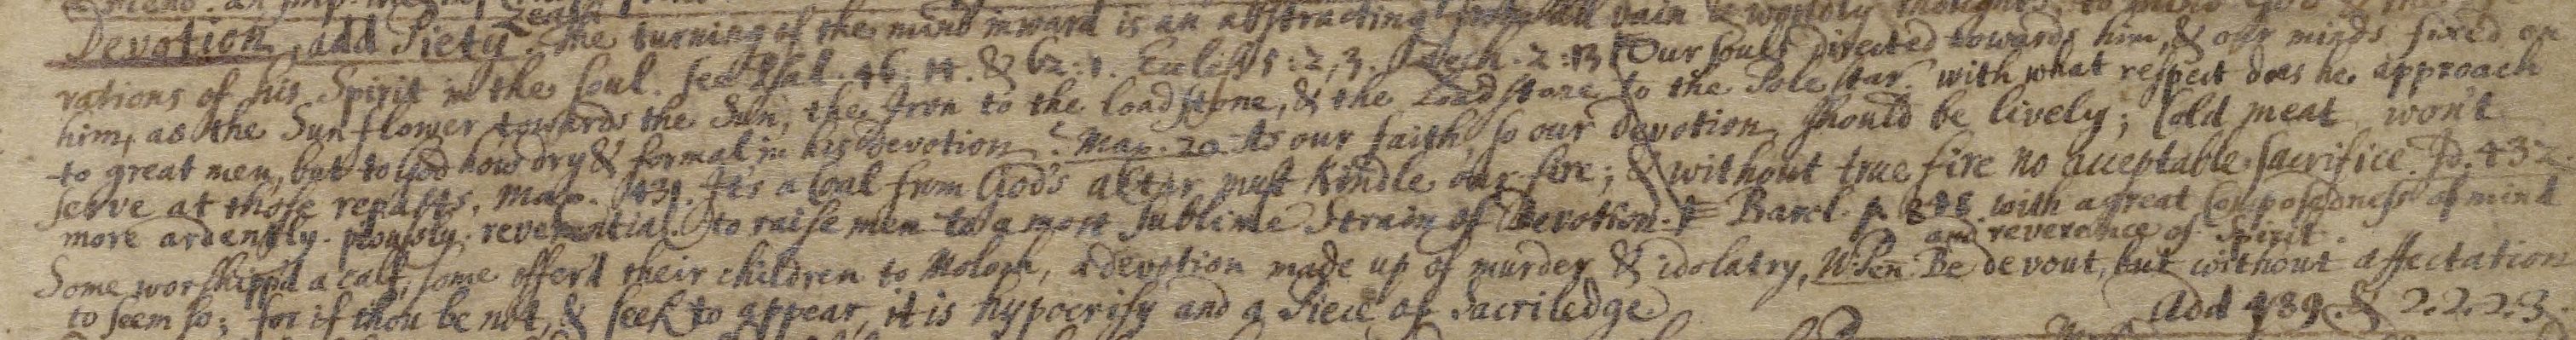 Zeal.
Devotion, add Piety. The turning of the mind inward is an abstracting from all vain & worldly thoughts, to
rations of his Spirit in the soul. see Psal. 46. & 62:1. Eccles. 5:2,3. Zech. 2:13 Our souls directed towards him, & our minds fixed on
him, as the Sunflower towards the Sun, the Iron to the loadstone, & the Loadstone to the Pole star. with what respect does he approach
to great men, but to God how dry & formal in his devotion. Man. 20. As our faith, so our devotion should be lively; Cold meat won't
serve at those repasts. Man. 143. It's a Coal from God's altar must kindle our fire; & without true fire no acceptable sacrifice. Id. 432
more ardently. piously. reverential. to raise men to a more sublime Strain of Devotion. Barcl. p. 848. with a great Composedness of mind
and reverance of Spirit.
Some worshipp'd a calf, some offer'd their children to Moloch, a devotion made up of murder & idolatry, W: Pen. Be devout, but without affectation
to seem so; for if thou be not, & seek to appear, it is hypocrisy and a Piece of Sacriledge
Add 489. & 2.2.2.3.